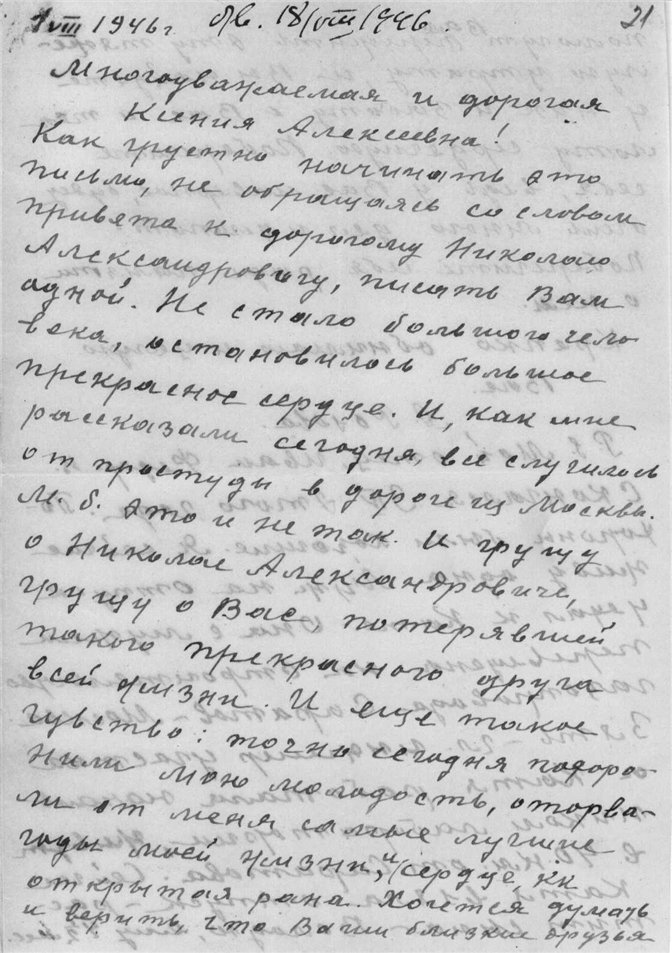 1 VIII 1946 г. Отв. 18/VIII/1946. 21
Многоуважаемая и дорогая
Ксения Алексеевна!
Как грустно начинать это
письмо, не обращаясь со словом
привета к дорогому Николаю
Александровичу, писать Вам
одной. Не стало большого чело-
века, остановилось большое
прекрасное сердце. И, как мне
рассказали сегодня, все случилось
от простуды в дороге из Москвы.
М. б. это и не так. И грущу
о Николае Александровиче,
грущу о Вас, потерявшей
такого прекрасного друга
всей жизни. И еще такое
чувство: точно сегодня похоро-
нили мою молодость, оторва-
ли от меня самые лучшие
годы моей жизни, и сердце, кк
открытая рана. Хочется думать
и верить, что Ваши близкие друзья